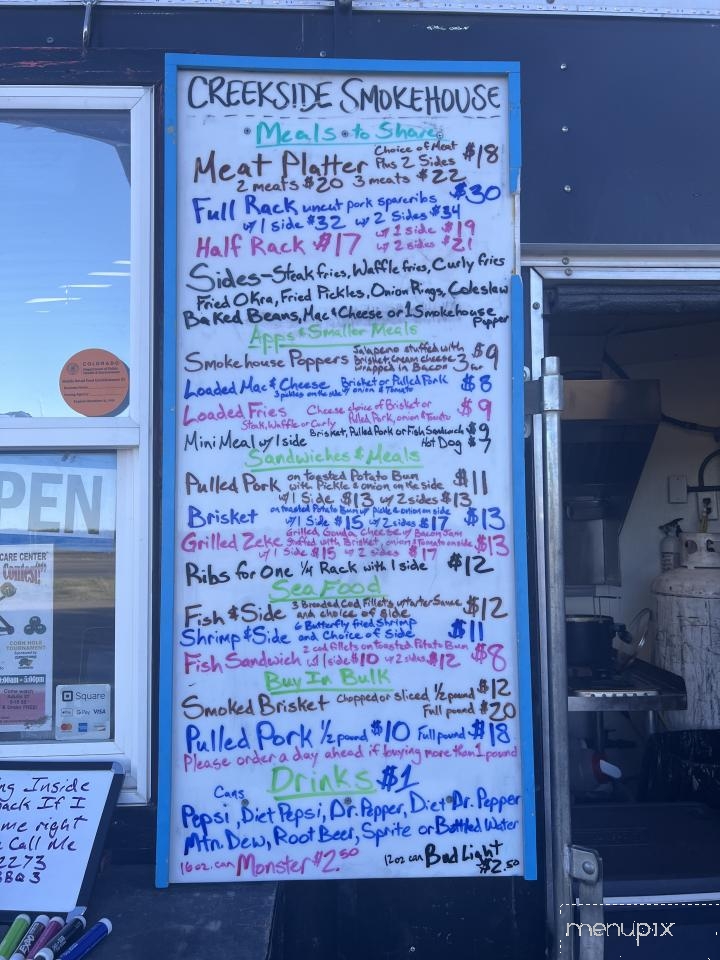 CREEKSIDE SMOKEHOUSE
Meals to Share
Meat Platter Choice of Meat Plus 2 Sides $18
2 meats $20 3 meats $22
Full Rack uncut pork spareribs $30
w/1 side $32 w/ 2 Sides $34
Half Rack $17 w/ 1 side $19
w/ 2 sides $21
Sides - Steak fries, Waffle fries, Curly fries
Fried Okra, Fried Pickles, Onion Rings, Coleslaw
Baked Beans, Mac & Cheese or 1 Smokehouse Popper
Apps & Smaller Meals
Smokehouse Poppers Jalapeno stuffed with
Brisket, cream cheese
wrapped in Bacon 3 for $9
Loaded Mac & Cheese Brisket or Pulled Pork $8
3 pickles on the side w/ onion & Tomato
Loaded Fries Cheese choice of Brisket or $9
Steak, Waffle or Curly Pulled Pork, onion & Tomato
Mini Meal w/ 1 side Brisket, Pulled Pork or Fish Sandwich $9
Hot Dog $7
Sandwiches & Meals
Pulled Pork on toasted Potato Bun $11
with Pickle & onion on the side
w/ 1 Side $13 w/ 2 sides $13
Brisket on toasted Potato Bun w/ pickle & onion on side $13
w/ 1 Side $15 w/ 2 sides $17
Grilled Zeke Grilled, Gouda Cheese w/ Bacon Jam $13
Stuffed with Brisket, onion & Tomato on side
w/ 1 Side $15 w/ 2 sides $17
Ribs for One 1/4 Rack with 1 side $12
Sea Food
Fish & Side 3 Breaded Cod Fillets w/ tarter Sauce $12
and choice of side
Shrimp & Side 6 Butterfly fried Shrimp $11
and Choice of Side
Fish Sandwich 2 cod fillets on toasted Potato Bun $8
w/ 1 side $10 w/ 2 sides $12
Buy In Bulk
Smoked Brisket Chopped or sliced 1/2 pound $12
Full pound $20
Pulled Pork 1/2 pound $10 Full pound $18
Please order a day ahead if buying more than 1 pound
Drinks $1
Cans
Pepsi, Diet Pepsi, Dr. Pepper, Diet Dr. Pepper
Mtn. Dew, Root Beer, Sprite or Bottled Water
16 oz. can Monster $2.50
12 oz can Bud Light $2.50
COLORADO
PEN
CARE CENTER
Contest!!
CORN HOLE
TOURNAMENT
Square
G Pay VISA
ng Inside
ack If I
me right
Call Me
2273
BBQ3
EXPO
menupix